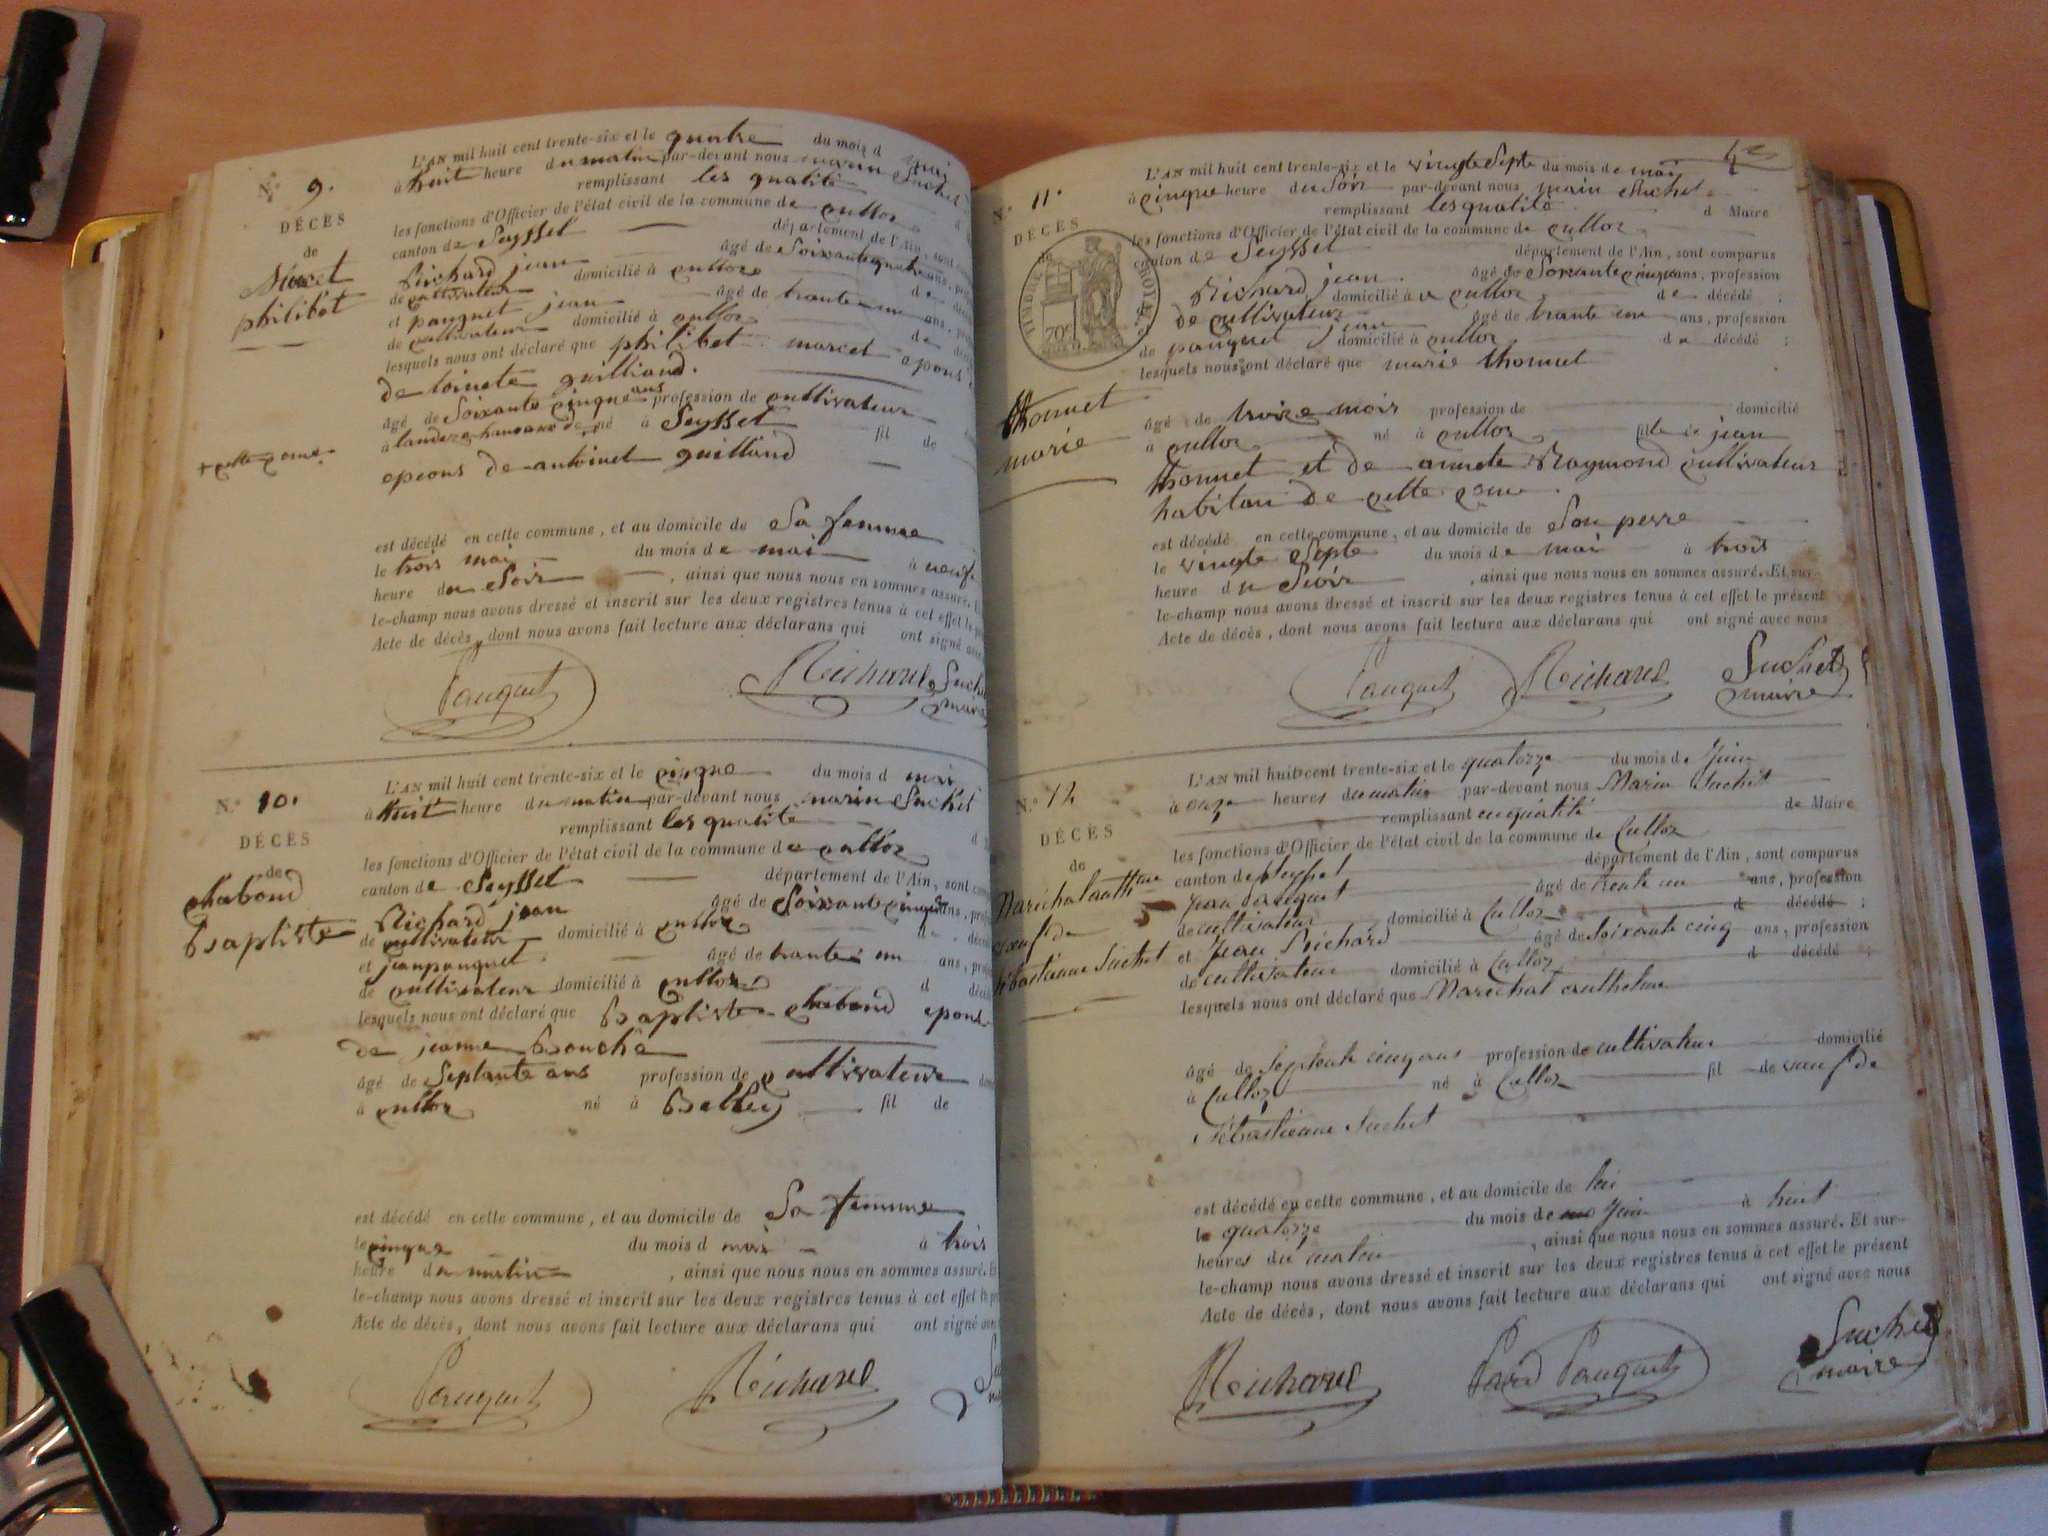 N.° 9.
DÉCÈS
de
Marcet
philibet
L'AN mil huit cent trente-six et le quatre du mois d mai
à huit heure du matin par-devant nous marin Suchet
remplissant les qualité
les fonctions d'Officier de l'état civil de la commune de culloz
canton de Seyssel département de l'Ain, sont
Richard jean âgé de Soixante quatre ans,
de cultivateur domicilié à culloz de
et pauquet jean âgé de trante un ans,
de cultivateur domicilié à culloz de
lesquels nous ont déclaré que philibet marcet epous
de toinete guilliand.
âgé de Soixante cinque ans profession de cultivateur
à né à Seyssel fil de
epeous de antoinet guilliand
+ cette come
est décédé en cette commune, et au domicile de Sa femme
le trois mai du mois de mai à neuf
heure du Soir, ainsi que nous nous en sommes assuré.
le-champ nous avons dressé et inscrit sur les deux registres tenus à cet effet le
Acte de décès, dont nous avons fait lecture aux déclarans qui ont signé
Pauquet Richard Suchet
maire
N.° 10.
DÉCÈS
de
chaboud
Baptiste
L'AN mil huit cent trente-six et le cinque du mois d mai
à huit heure du matin par-devant nous marin Suchet
remplissant les qualité d
les fonctions d'Officier de l'état civil de la commune de culloz
canton de Seyssel département de l'Ain, sont
Richard jean âgé de Soixante cinque ans,
de cultivateur domicilié à culloz d
et jean pauquet âgé de trante un ans,
de cultivateur domicilié à culloz d
lesquels nous ont déclaré que Baptiste chaboud epous
de jeanne Bouché
âgé de Septante ans profession de cultivateur
à culloz né à Belley fil de
est décédé en cette commune, et au domicile de Sa femme
le cinque du mois d mai à trois
heure du matin, ainsi que nous nous en sommes assuré.
le-champ nous avons dressé et inscrit sur les deux registres tenus à cet effet le
Acte de décès, dont nous avons fait lecture aux déclarans qui ont signé
Pauquet Richard
N.° 11.
DÉCÈS
TIMBRE ROYAL
70c
thonnet
marie
L'AN mil huit cent trente-six et le vingte Septe du mois de mai
à cinque heure du Soir par-devant nous marin Suchet
remplissant les qualité d Maire
les fonctions d'Officier de l'état civil de la commune de culloz
canton de Seyssel département de l'Ain, sont comparus
Richard jean âgé de Soixante cinque ans, profession
de cultivateur domicilié à culloz de décédé ;
de pauquet jean âgé de trante un ans, profession
domicilié à culloz du décédé ;
lesquels nous ont déclaré que marie thonnet
âgé de troize mois profession de domicilié
à culloz né à culloz fille de jean
thonnet et de annete Raymond cultivateur
habitan de cette come
est décédé en cette commune, et au domicile de Son perre
le vingte Septe du mois de mai à trois
heure du Soir, ainsi que nous nous en sommes assuré. Et sur-
le-champ nous avons dressé et inscrit sur les deux registres tenus à cet effet le présent
Acte de décès, dont nous avons fait lecture aux déclarans qui ont signé avec nous
Pauquet Richard Suchet
maire
N.° 12
DÉCÈS
de
Maréchal anthme
veuf de
Sébastienne Suchet
L'AN mil huit cent trente-six et le quatorze du mois de Juin
à onze heures du matin par-devant nous Marin Suchet
remplissant en qualité de Maire
les fonctions d'Officier de l'état civil de la commune de Culloz
canton de Seyssel département de l'Ain, sont comparus
Jean Pauquet âgé de trente un ans, profession
de cultivateur domicilié à Culloz d décédé ;
et Jean Richard âgé de soixante cinq ans, profession
de cultivateur domicilié à Culloz d décédé ;
lesquels nous ont déclaré que Maréchal anthelme
âgé de Septente cinq ans profession de cultivateur domicilié
à Culloz né à Culloz fil de veuf de
Sébastienne Suchet
est décédé en cette commune, et au domicile de lui
le quatorze du mois de Juin à huit
heures du matin, ainsi que nous nous en sommes assuré. Et sur-
le-champ nous avons dressé et inscrit sur les deux registres tenus à cet effet le présent
Acte de décès, dont nous avons fait lecture aux déclarans qui ont signé avec nous
Richard Pauquet Suchet
maire